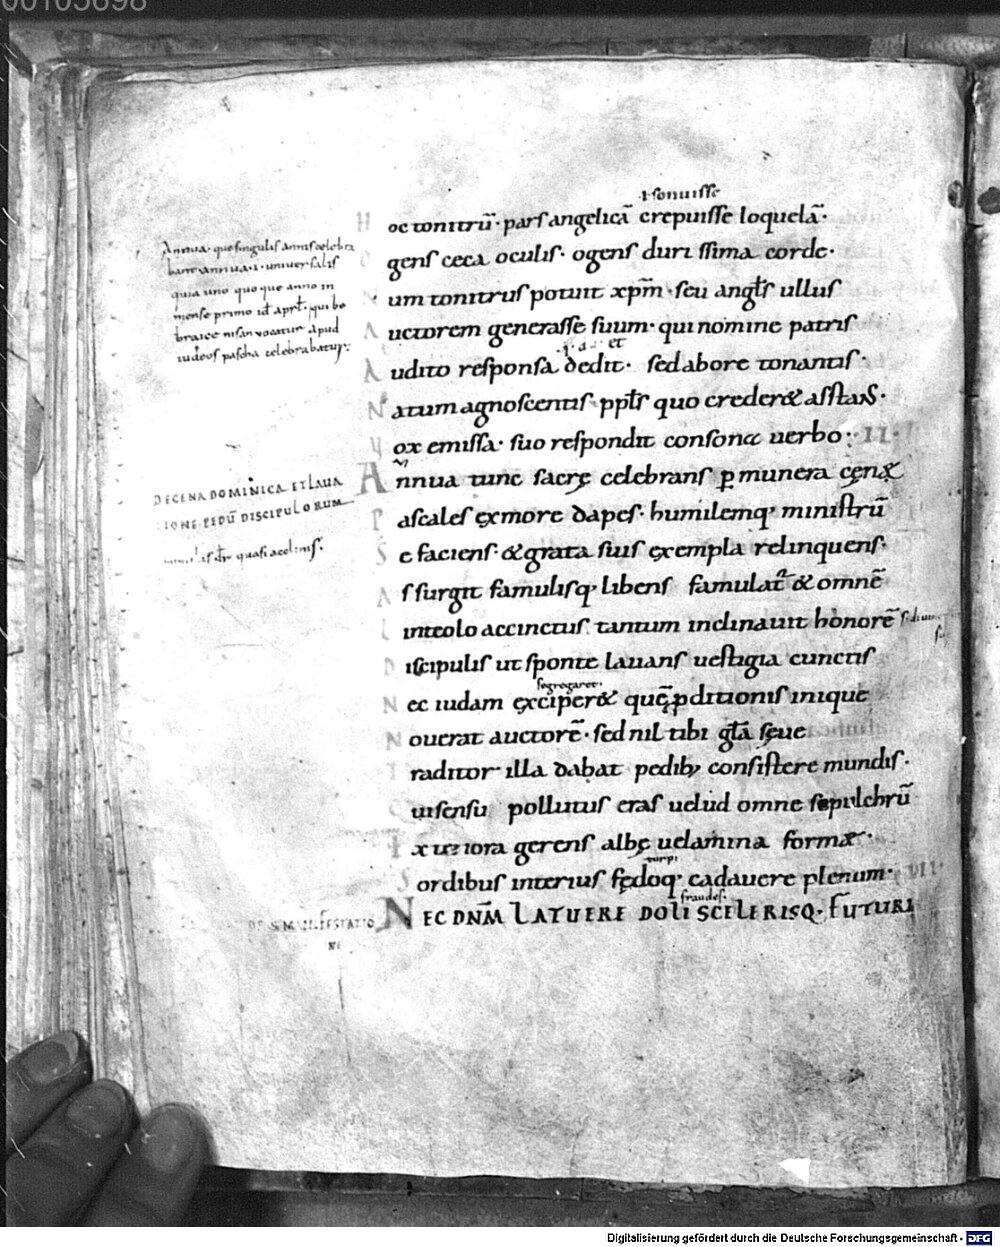 ł sonuisse
Hoc tonitrū· pars angelicā crepuisse loquelā·
O gens ceca oculis· o gens durissima corde·
Num tonitrus potuit xp̄m· seu angl̄s ullus
Auctorem generasse suum· qui nomine patris
Audito responsa dedit· sed ab ore tonantis·
Natum agnoscentis· ppt̄r quo crederet astans·
Uox emissa· suo respondit consona uerbo· II·
Annua tunc sacrę celebrans p munera cęnę
Pascales ex more dapes· humilemq· ministrū
Se faciens· & grata suis exempla relinquens·
Assurgit famulisq· libens famulat̄ & omnē
Linteolo accinctus· tantum inclinauit honorē
Discipulis ut sponte lauans uestigia cunctis
segregaret·
Nec iudam exciperet quę pditionis inique
Nouerat auctorē· sed nil tibi gl̄a sęue
Traditor illa dabat pedib; consistere mundis·
Qui sensu pollutus eras uelud omne sepulchrū
Exteriora gerens albę uelamina formæ·
turpi
Sordibus interius fędoq· cadauere plenum· VII·
fraudes·
NEC DNM LATUERE DOLI SCELERISQ· FUTURI
Annua· que singulis annis celebra
bant annua·i· uniuersalis
quia uno quoque anno in
mense primo id̄ aprł· qui he
braice nisan uocatur apud
iudeos pascha celebrabatur·
DE CENA DOMINICA ET LAUA
TIONE PEDŪ DISCIPULORUM
quasi